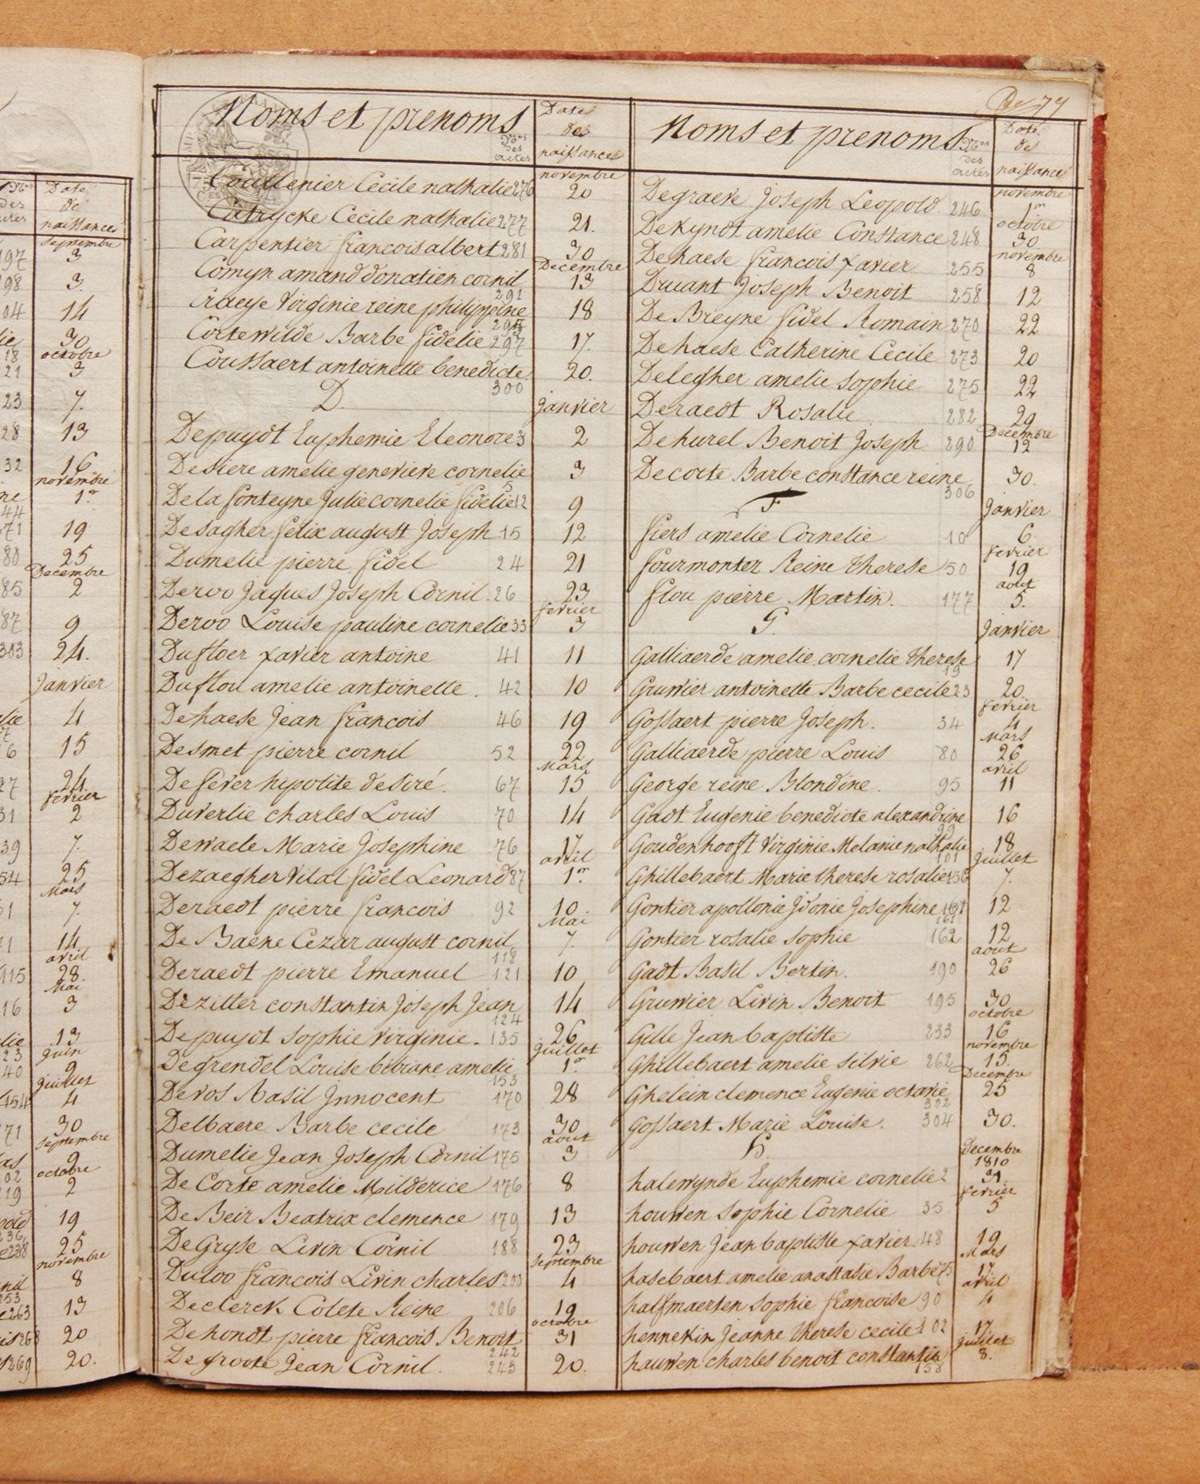 De 77
Noms et prenoms
Nos des actes
Date des naissances
novembre
Coullenier Cecile nathalie 276 20
Catrycke Cecile nathalie 277 21.
Carpentier francois albert 281 30
Decembre
Comyn amand donatien cornil 291 13
Craeye Virginie reine philippine 295 18
Cortewilde Barbe fidelie 297 17.
Coussaert antoinette benedicte 300 20.
D.
janvier
Depuydt Euphemie Eleonore 3 2
Desiere amelie genevieve cornelie 3
De la fonteyne Julie cornelie fidelie 12 9
Desagher felix august Joseph 15 12
Dumelie pierre fidel 24 21
Deroo Jaques Joseph Cornil 26 23
fevrier
Deroo Louise pauline cornelie 33 3
Dufloer xavier antoine 41 11
Duflou amelie antoinette. 42 10
Dehaese Jean francois 46 19
Desmet pierre cornil 52 22
Mars
De fever hipolite desiré. 67 15
Duverlie charles Louis 70 14
Dewaele Marie Josephine 76 17
avril
Dezaegher Vital fidel Leonard 87 1er
Deraedt pierre francois 92 10
Mai
De Baene Cezar august cornil 118 7
Deraedt pierre Emanuel 121 10
Deziller constantin Joseph Jean 124 14
Depuydt Sophie Virginie. 135 26
juillet
Degrendel Louise bibiane amelie 153 1er
Devos Basil Jnnocent 170 28
Delbaere Barbe cecile 173 30
aout
Dumelie Jean Joseph Cornil 175 3
De Corte amelie Milderice 176 8
De Beir Beatrix clemence 179 13
De Gryse Livin Cornil 188 23
Septembre
Duloo francois Livin charles 203 4
Declerck Colete Reine 206 19
octobre
Dehondt pierre francois Benoit 242 31
De groote Jean Cornil. 245 20.
Noms et prenoms
Nos des actes
Date des naissances
novembre
Degraeve Joseph Leopold 246 1er
octobre
Dekyndt amelie Constance 248 30
novembre
Dehaese francois xavier 255 8
Druant Joseph Benoit 258 12
De Breyne fidel Romain 270 22
Dehaese Catherine Cecile 273 20
Delegher amelie sophie 275 22
Deraedt Rosalie 282 29
Decembre
Dehurel Benoit Joseph 290 12
Decorte Barbe constance reine 306 30.
F
janvier
fiers amelie Cornelie 10 6
fevrier
fourmonter Reine Therese 50 19
aout
flou pierre Martin. 177 5.
G.
janvier
Galliaerde amelie cornelie therese 19 17
Gruwier antoinette Barbe cecile 23 20
fevrier
Gossaert pierre Joseph. 34 4
Mars
Galliaerde pierre Louis 80 26
avril
George reine Blondine. 95 11
Gadt Eugenie benedicte alexandrine 16
Goudenhooft Virginie Melanie nathalie 101 18
juillet
Ghillebaert Marie therese rosalie 156 7.
Gontier apollonie Jdonie Josephine 161 12
Gontier rosalie Sophie 162 12
aout
Gadt Basil Bertin. 190 26
Gruwier Livin Benoit 195 30
octobre
Gille Jean baptiste 233 16
novembre
Ghillebaert amelie silvie 262 15
Decembre
Ghelein clemence Eugenie octavie 322 25
Gossaert Marie Louise. 304 30.
H.
Decembre 1810
halewynde Euphemie cornelie 2 31
fevrier
houwen Sophie Cornelie 35 5
houwen Jean baptiste xavier 48 19
Mars
hasebaert amelie anastasie Barbe 75 17
avril
halfmaerten Sophie francoise 90 4
hennekin Jeanne therese cecile 102 17
juillet
hauwen charles benoit constantin 158 8.